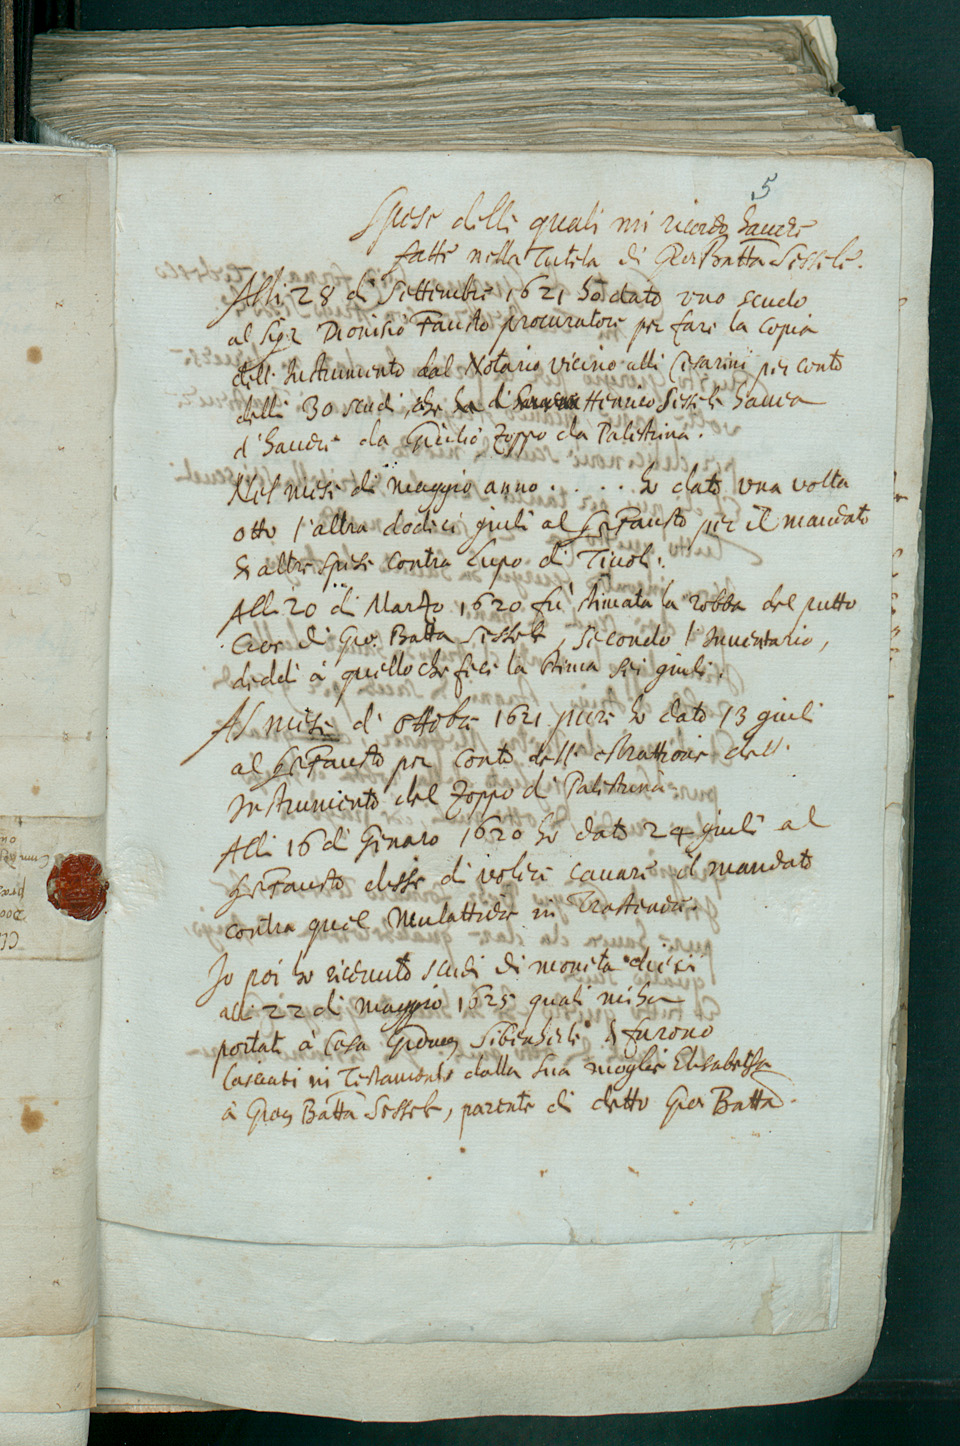 5
Spese delle quali mi ricordo havere
fatte nella Tutela di Gio Batta Sessele.
Alli 28 di Settembre 1621 ho dato uno scudo
al Sigr Dionisio Fausto procuratore per fare la copia
dell' Instrumento dal Notario vicino alli Cesarini per conto
delli 30 scudi, che ha di Henrico Sessele haveva
d' havere da Giulio Zoppo da Palestrina.
Nel mese di maggio anno . . . . ho dato una volta
otto l'altra dodici giuli al Sr Fausto per il mandato
& altre spese contra Lupo di Tivoli.
Alli 20 di Marzo 1620 fu stimata la robba del putto
Cioe di Gio. Batta Sessele, secondo l'Inventario,
diedi à quello che fece la stima sei giuli.
Al mese di Ottobre 1621 pure ho dato 13 giuli
al Sr Fausto per conto dell' estrattione dell'
Instrumento del Zoppo di Palestrina
Alli 16 di Genaro 1620 ho dato 24 giuli al
Sr Fausto disse di voler cavare il mandato
contra quel Mulattiere in Trastevere.
Io poi ho ricevuto scudi di moneta dieci
alli 22 di maggio 1625 quali mi ha
portati à Casa & furono
lasciati in Testamento dalla sua moglie Elisabetha
à Gio Batta Sessele, parente di detto Gio Batta.